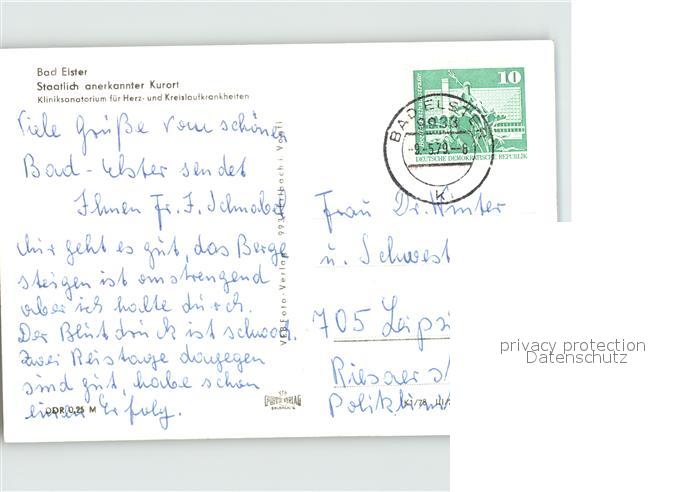 Bad Elster
Staatlich anerkannter Kurort
Kliniksanatorium für Herz- und Kreislaufkrankheiten
Viele Grüße vom schönen
Bad-Elster sendet
Ihnen Fr. F.
Mir geht es gut, das Berge
steigen ist anstrengend
aber ich halte durch.
Der Blutdruck ist schwan.
Zwei Reistage dagegen
sind gut, habe schon
einen Erfolg.
DDR 0,25 M
VEB Foto-Verlag
993
10
DEUTSCHE DEMOKRATISCHE REPUBLIK
BAD ELSTER
9933
-9.-5.79.-8
k
Frau Dr.
u. Schwest
705 Leipzi
Riesaer st
privacy protection
Datenschutz